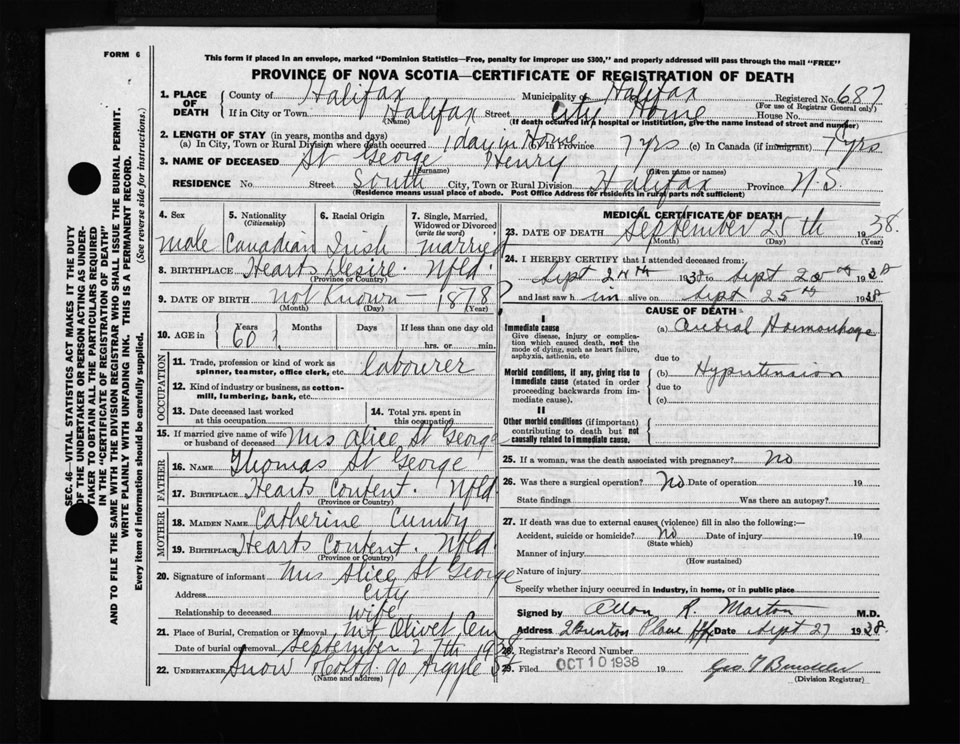 FORM 6
This form if placed in an envelope, marked "Dominion Statistics—Free, penalty for improper use $300," and properly addressed will pass through the mail "FREE"
PROVINCE OF NOVA SCOTIA—CERTIFICATE OF REGISTRATION OF DEATH
1. PLACE OF DEATH County of Halifax Municipality of Halifax Registered No. 687
(For use of Registrar General only)
If in City or Town Halifax Street City Home House No.
(Name) (If death occurred in a hospital or institution, give the name instead of street and number)
2. LENGTH OF STAY (in years, months and days)
(a) In City, Town or Rural Division where death occurred 1 day in Home (b) In Province 7 yrs (c) In Canada (if immigrant) 7 yrs
3. NAME OF DECEASED St George Henry
(Surname) (Given name or names)
RESIDENCE No. Street South City, Town or Rural Division Halifax Province N.S.
(Residence means usual place of abode. Post Office Address for residents in rural parts not sufficient)
4. Sex 5. Nationality (Citizenship) 6. Racial Origin 7. Single, Married, Widowed or Divorced (write the word)
male Canadian Irish married
8. BIRTHPLACE Hearts Desire. Nfld.
(Province or Country)
9. DATE OF BIRTH not known — 1878
(Month) (Day) (Year)
10. AGE in Years Months Days If less than one day old
60 hrs. or min.
OCCUPATION
11. Trade, profession or kind of work as spinner, teamster, office clerk, etc. Labourer
12. Kind of industry or business, as cotton-mill, lumbering, bank, etc.
13. Date deceased last worked at this occupation
14. Total yrs. spent in this occupation
15. If married give name of wife or husband of deceased Mrs Alice St George
FATHER
16. NAME Thomas St George
17. BIRTHPLACE Hearts Content. Nfld
(Province or Country)
MOTHER
18. MAIDEN NAME Catherine Cumby
19. BIRTHPLACE Hearts Content. Nfld.
(Province or Country)
20. Signature of informant Mrs Alice St George
Address City
Relationship to deceased wife
21. Place of Burial, Cremation or Removal Mt Olivet Cem
Date of burial or removal September 27th 1938
22. UNDERTAKER Snow & Co Ltd 90 Argyle St
(Name and address)
MEDICAL CERTIFICATE OF DEATH
23. DATE OF DEATH September 25th 1938.
(Month) (Day) (Year)
24. I HEREBY CERTIFY that I attended deceased from:
Sept 24th 1938 to Sept 25th 1938
and last saw him alive on Sept 25th 1938
CAUSE OF DEATH
I
Immediate cause
Give disease, injury or complication which caused death, not the mode of dying, such as heart failure, asphyxia, asthenia, etc
(a) Cerebral Haemorrhage
due to
Morbid conditions, if any, giving rise to immediate cause (stated in order proceeding backwards from immediate cause).
(b) Hypertension
due to
(c)
II
Other morbid conditions (if important) contributing to death but not causally related to immediate cause.
25. If a woman, was the death associated with pregnancy? No
26. Was there a surgical operation? No Date of operation 19
State findings Was there an autopsy?
27. If death was due to external causes (violence) fill in also the following:—
Accident, suicide or homicide? No Date of injury 19
(State which)
Manner of injury
(How sustained)
Nature of injury
Specify whether injury occurred in industry, in home, or in public place
Signed by Allan R. Morton M.D.
Address Place Hfx Date Sept 27 1938.
28. Registrar's Record Number
29. Filed OCT 10 1938 19 Geo. T
(Division Registrar)
SEC. 46—VITAL STATISTICS ACT MAKES IT THE DUTY
OF THE UNDERTAKER OR PERSON ACTING AS UNDER-
TAKER TO OBTAIN ALL THE PARTICULARS REQUIRED
IN THE "CERTIFICATE OF REGISTRATION OF DEATH"
AND TO FILE THE SAME WITH THE DIVISION REGISTRAR WHO SHALL ISSUE THE BURIAL PERMIT.
WRITE PLAINLY WITH UNFADING INK. THIS IS A PERMANENT RECORD.
Every item of information should be carefully supplied. (See reverse side for instructions.)